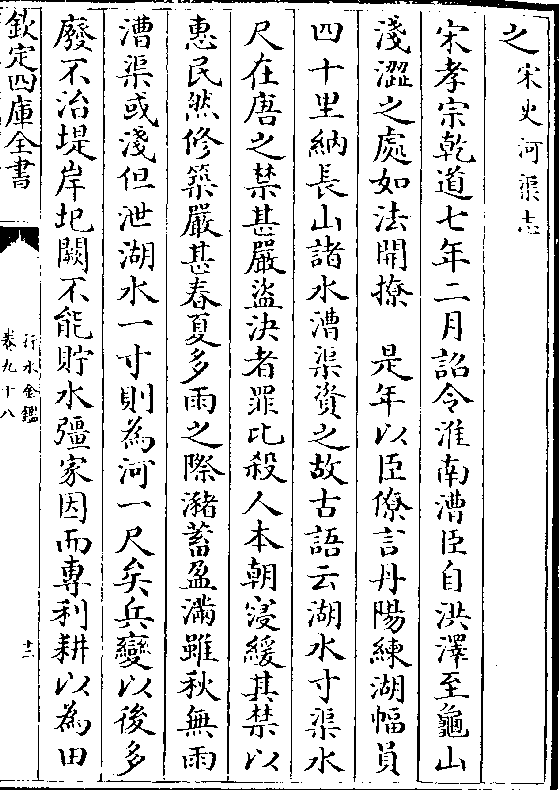 之宋史河渠志
宋孝宗乾道七年二月詔令淮南漕臣自洪澤至龜山
淺澀之處如法開撩　是年以臣僚言丹陽練湖幅員
四十里納長山諸水漕渠資之故古語云湖水寸渠水
尺在唐之禁甚嚴盜決者罪比殺人本朝寖緩其禁以
惠民然修築嚴甚春夏多雨之際瀦蓄盈滿雖秋無雨
漕渠或淺但泄湖水一寸則為河一尺矣兵變以後多
廢不治堤岸圮闕不能貯水彊家因而專利耕以為田
欽定四庫全書
行水金鑑
卷九十八
十二